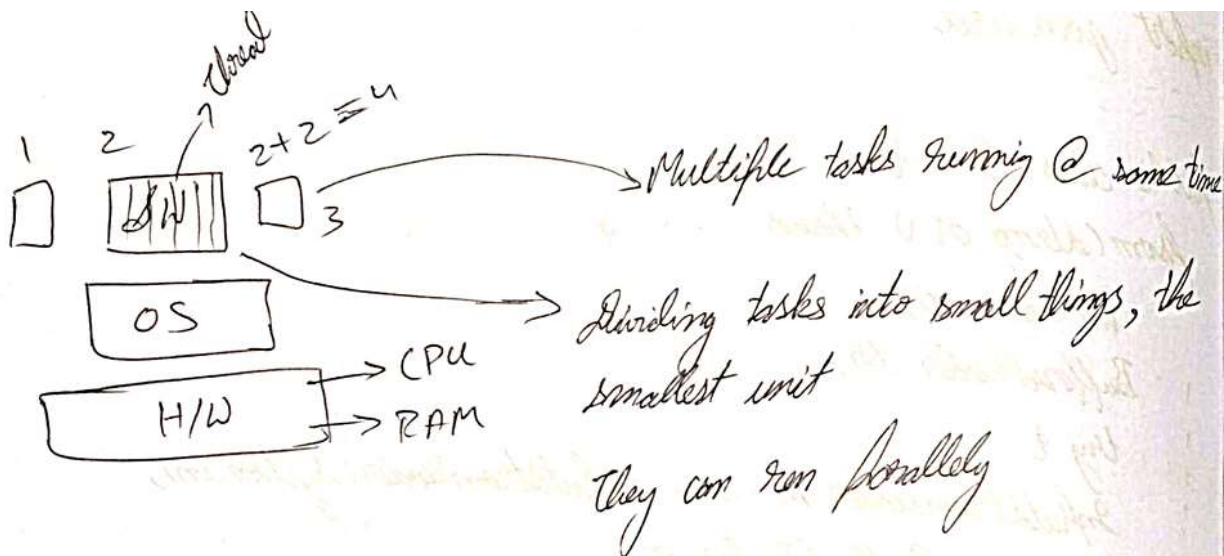 Thread
1 2 2+2=4
SW 3
Multiple tasks runnig @ same time
OS
Dividing tasks into small things, the
smallest unit
H/W CPU
RAM
They can run parallely